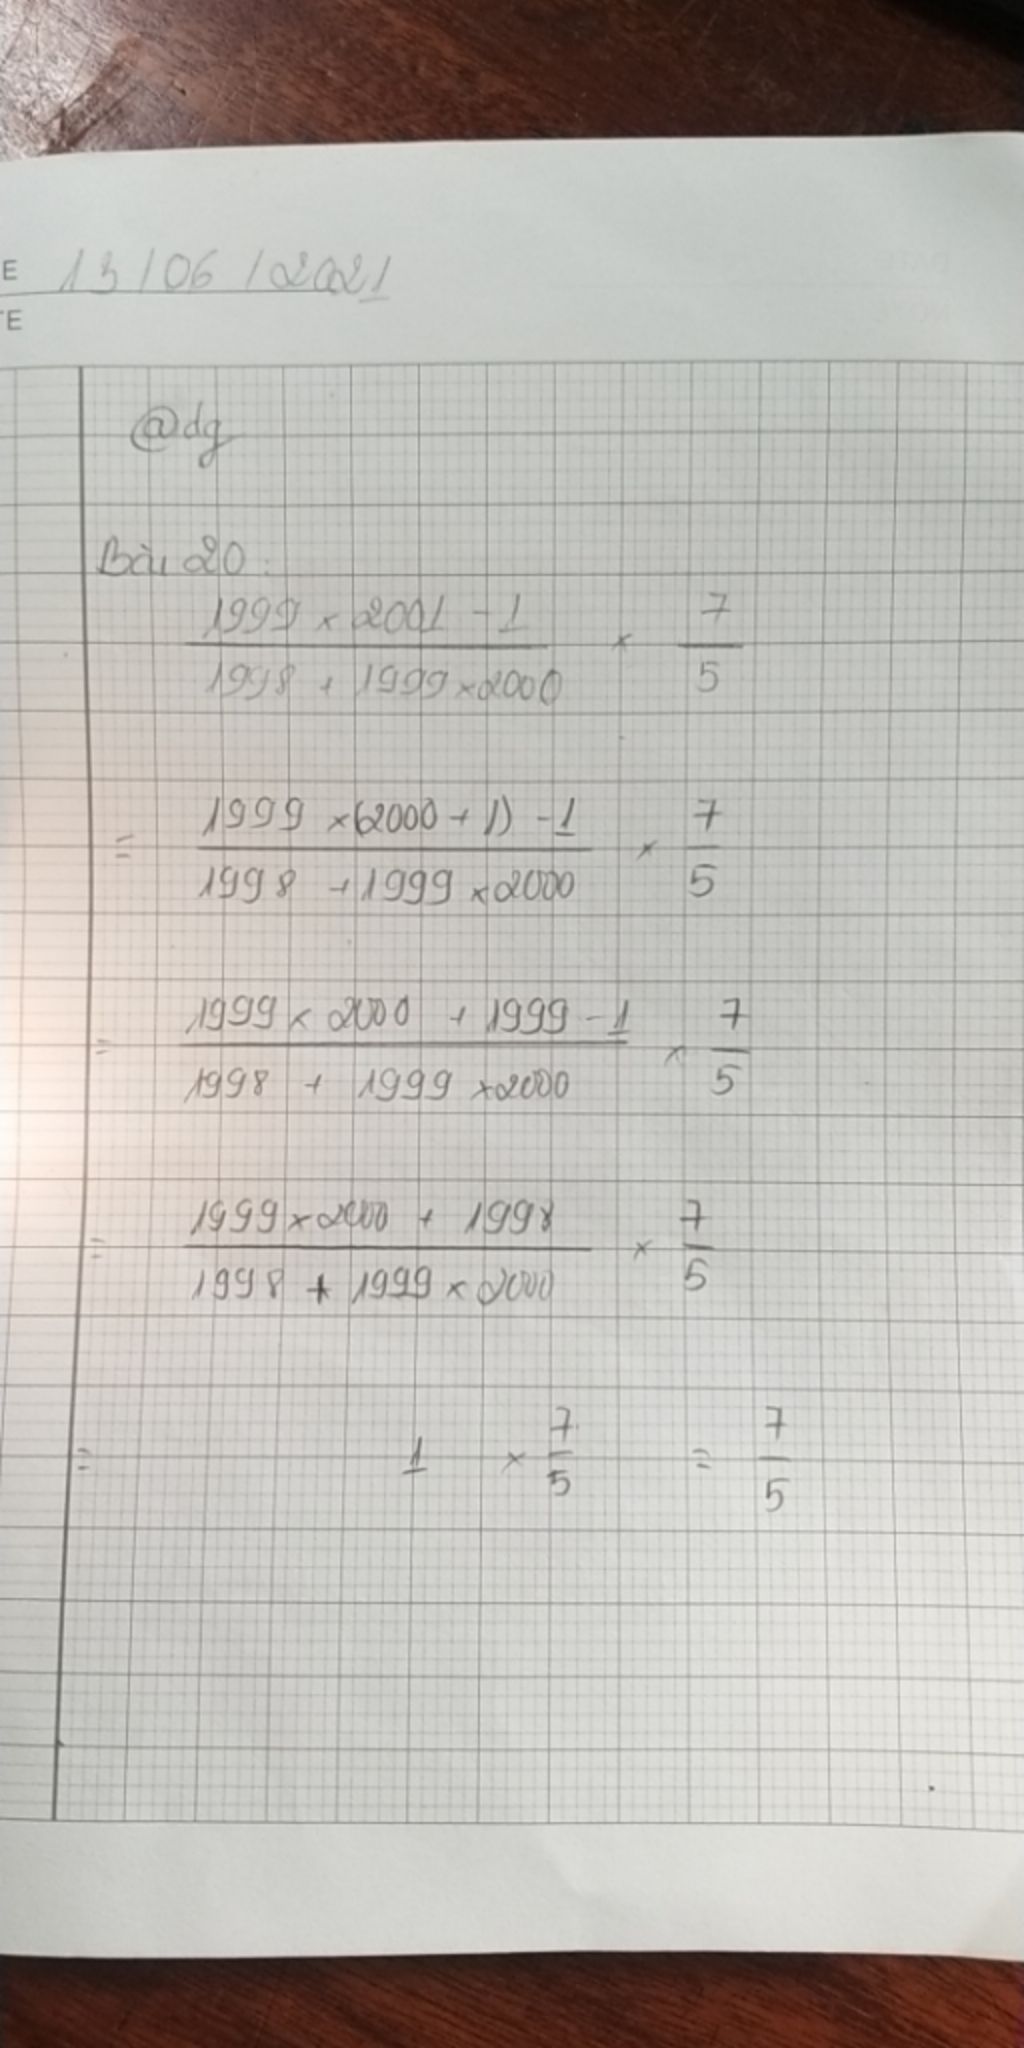 E 13/06/2021
TE
@dg
Bài 20:
1999 × 2001 - 1 / 1998 + 1999 × 2000 × 7/5
= 1999 × (2000 + 1) - 1 / 1998 + 1999 × 2000 × 7/5
= 1999 × 2000 + 1999 - 1 / 1998 + 1999 × 2000 × 7/5
= 1999 × 2000 + 1998 / 1998 + 1999 × 2000 × 7/5
= 1 × 7/5 = 7/5